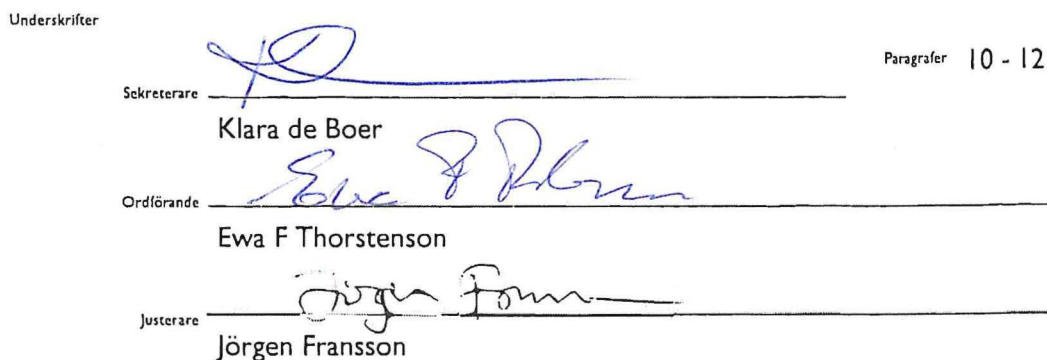 Underskrifter
Paragrafer 10 - 12
Sekreterare
Klara de Boer
Ordförande
Ewa F Thorstenson
Justerare
Jörgen Fransson